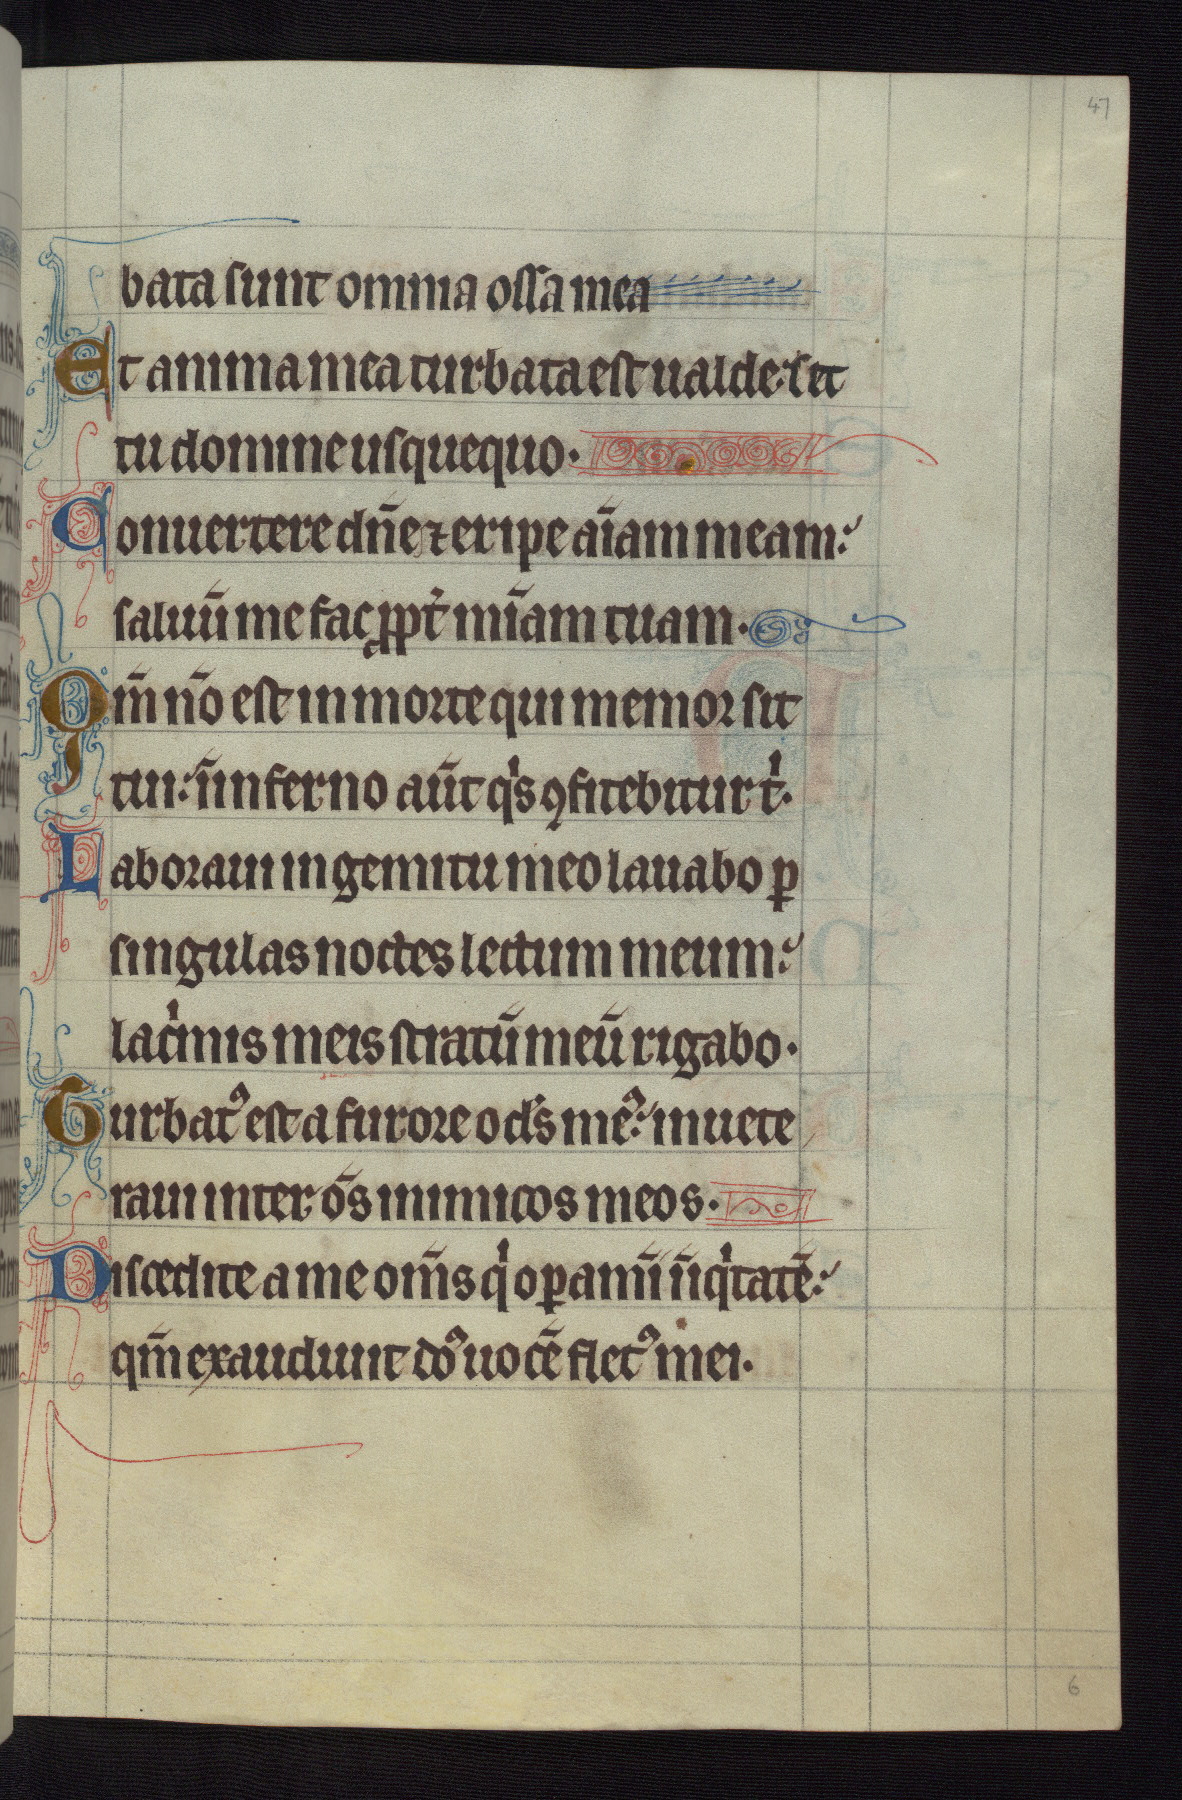 47
bata sunt omnia ossa mea
Et anima mea turbata est ualde: set
tu domine usquequo.
Conuertere dñe ⁊ eripe aīam meam:
saluū me fac ꝓpt̾ mīam tuam.
Qm̄ nō est in morte qui memor sit
tui: ī inferno aūt qͥs ꝯfitebitur tͥ.
Laboraui in gemitu meo lauabo ꝑ
singulas noctes lectum meum:
lacͥmis meis stratū meū rigabo.
Turbatꝰ est a furore oclꝰs meꝰ: inuete
raui inter ōs inimicos meos.
Discedite a me om̄s qͥ oꝑamī īiqͥtatē:
qm̄ exaudiuit dōꝰ uocē fletꝰ mei.
6